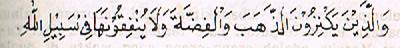 وَالَّذِيْنَ يَكْنِزُوْنَ الذَّهَبَ وَالْفِضَّةَ وَلَا يُنْفِقُوْنَهَا فِيْ سَبِيْلِ اللّٰهِ